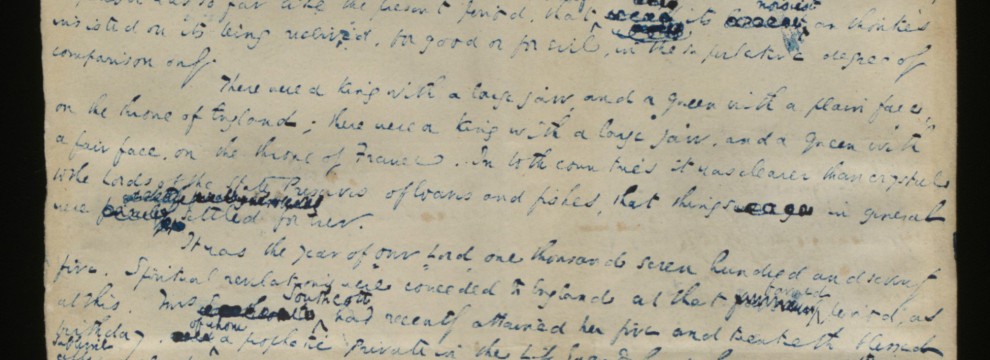 so far like the present period, that its noisiest authorities
insisted on its being received, for good or for evil, in the superlative degree of
comparison only.
There were a king with a large jaw and a queen with a plain face,
on the throne of England; there were a king with a large jaw, and a queen with
a fair face, on the throne of France. In both countries it was clearer than crystal
to the Lords of the State Preserves of loaves and fishes, that things in general
were settled for ever.
It was the year of our Lord one thousand seven hundred and seventy
five. Spiritual revelations were conceded to England at that favored period, as
at this. Mrs Southcott had recently attained her five and twentieth blessed
birthday of whom a prophetic private in the Life Guards
sublime